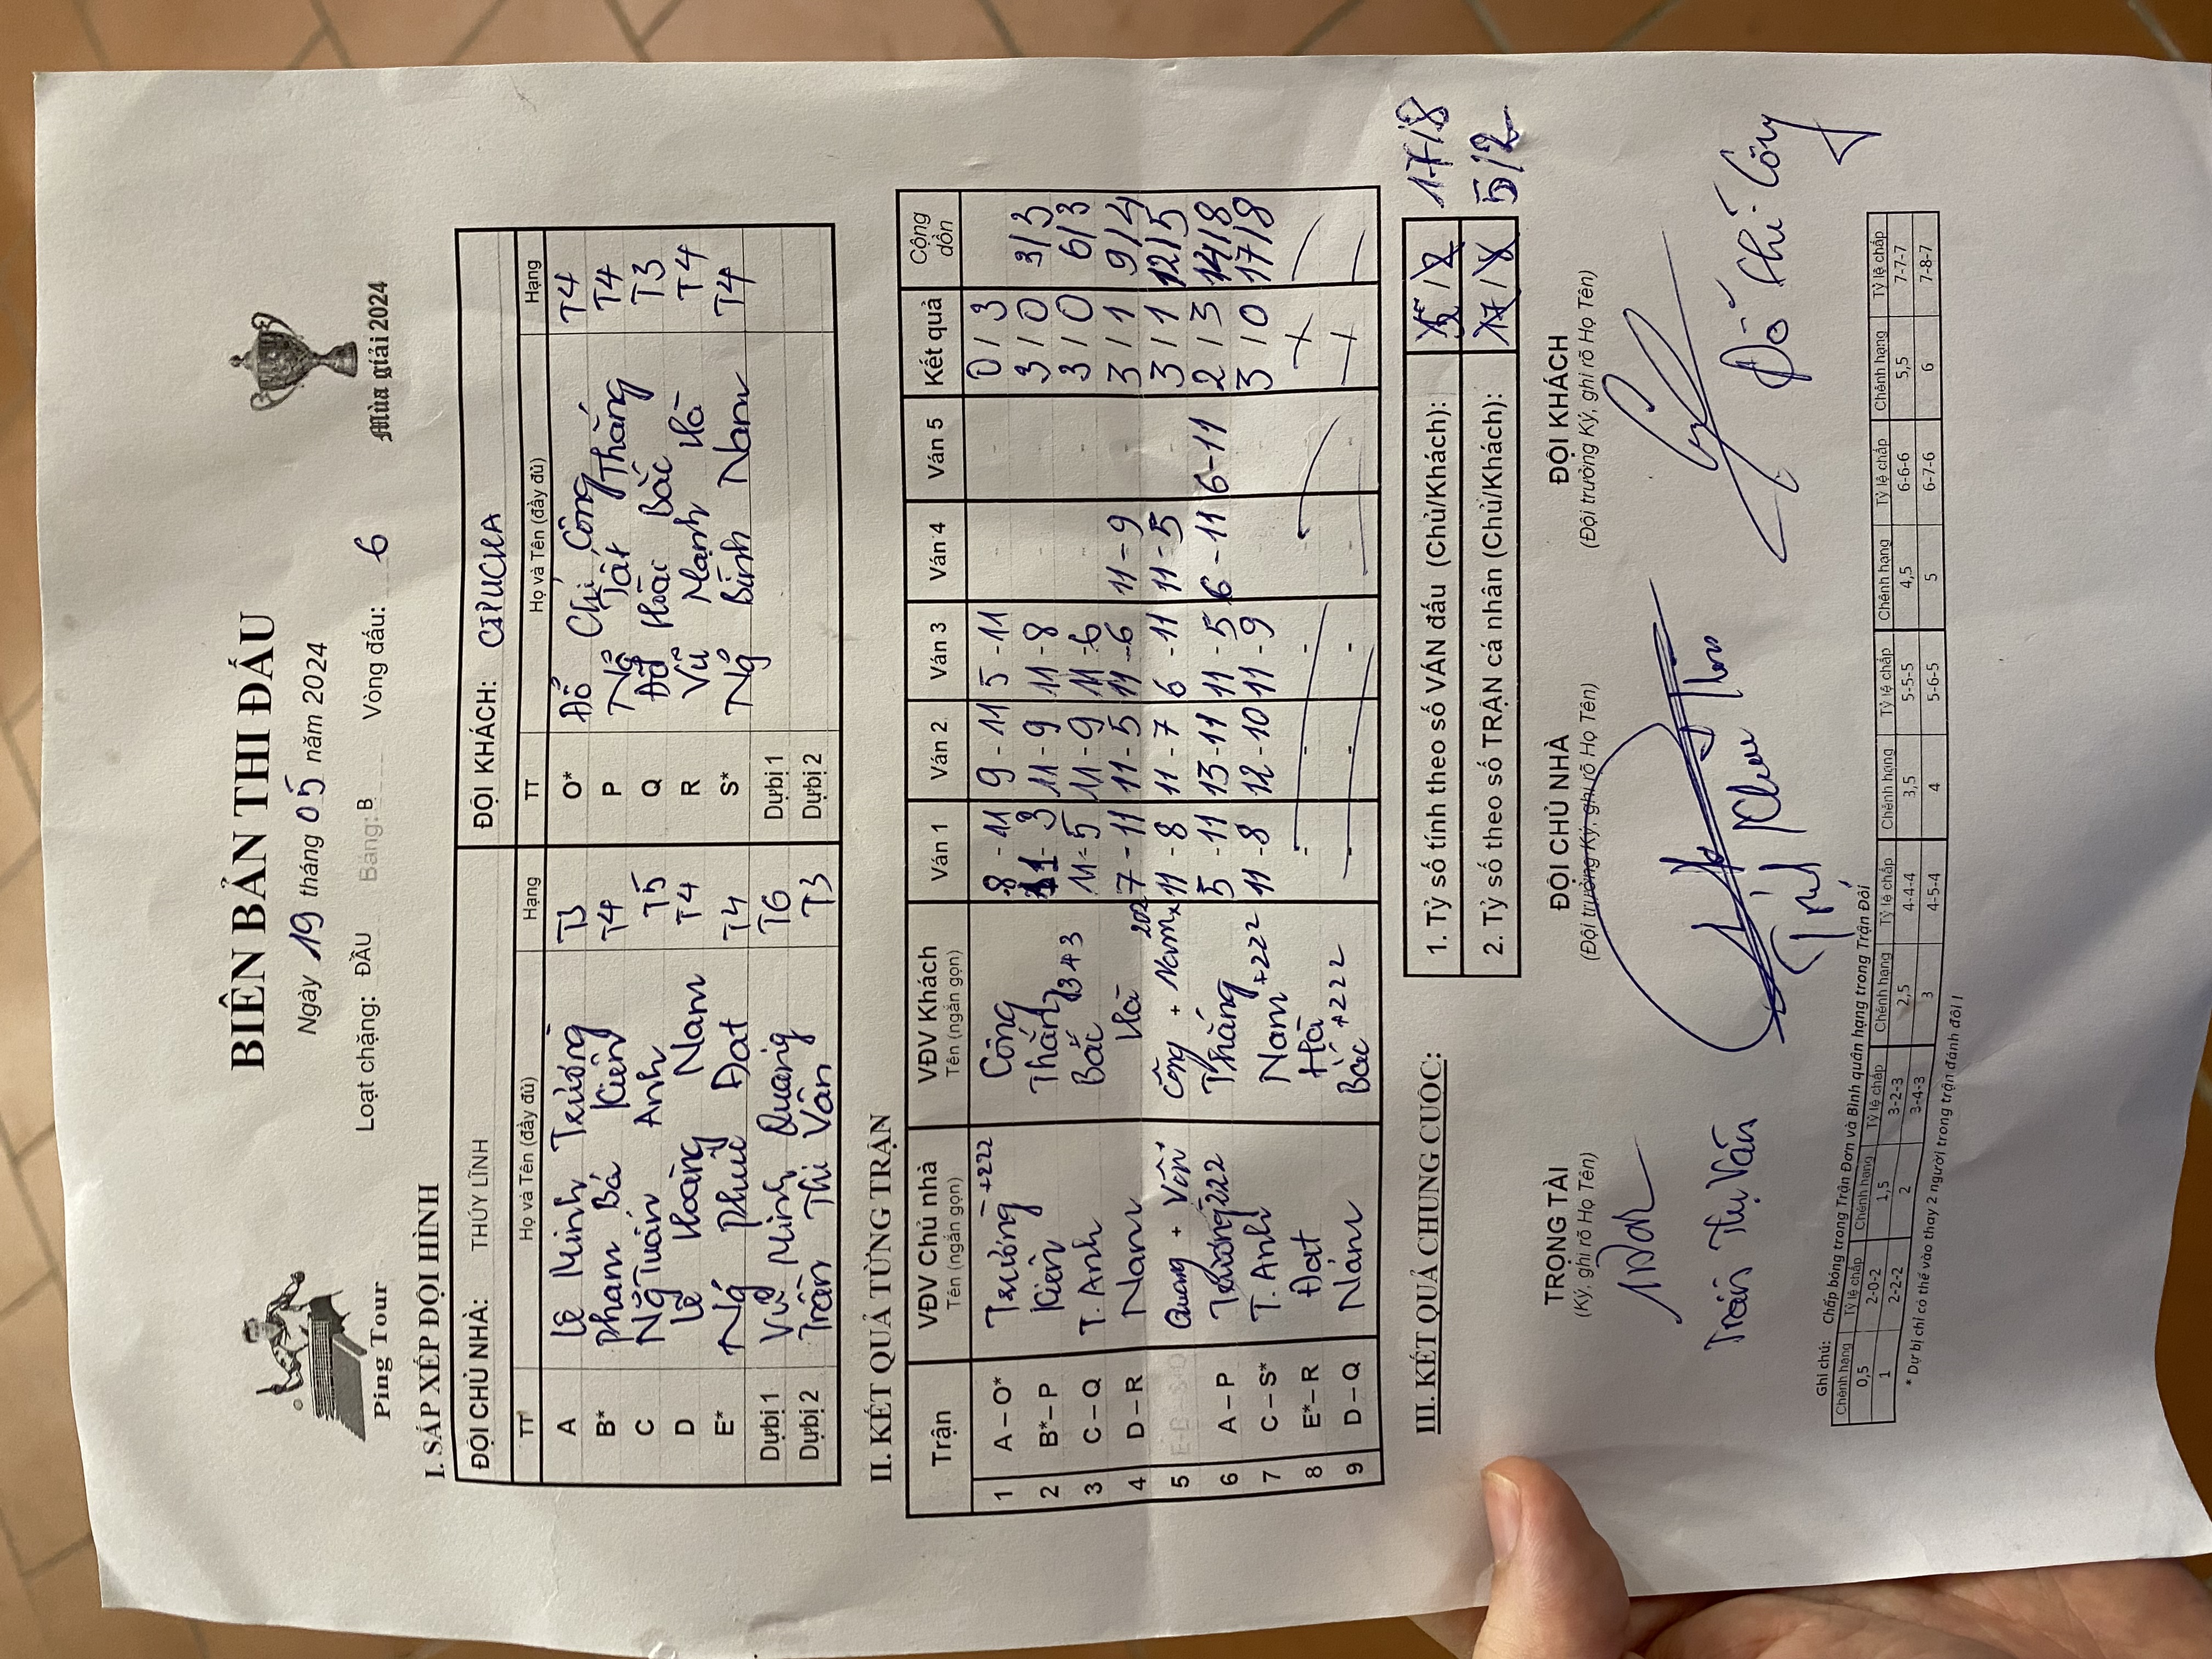 BIÊN BẢN THI ĐẤU
Ngày 19 tháng 05 năm 2024
Ping Tour
Loạt chặng: ĐẦU Bảng: B Vòng đấu: 6
Mùa giải 2024
I. SẮP XẾP ĐỘI HÌNH
ĐỘI CHỦ NHÀ: THÚY LĨNH ĐỘI KHÁCH: CIPUCHA
TT Họ và Tên (đầy đủ) Hạng TT Họ và Tên (đầy đủ) Hạng
A Lê Minh Trường T3 O* Đỗ Chí Công T4
B* Phạm Bá Kiên T4 P Ng Tất Thắng T4
C Ng Tuấn Anh T5 Q Hoài Bắc T3
D Lê Hoàng Nam T4 R Vũ Mạnh Hà T4
E* Ng Phúc Đạt T4 S* Ng Bình Nam T4
Dự bị 1 Vũ Minh Quang T6 Dự bị 1
Dự bị 2 Trần Thị Vân T3 Dự bị 2
II. KẾT QUẢ TỪNG TRẬN
Trận VĐV Chủ nhà VĐV Khách Ván 1 Ván 2 Ván 3 Ván 4 Ván 5 Kết quả Cộng dồn
Tên (ngắn gọn) Tên (ngắn gọn)
1 A – O* Trường +222 Công 8 - 11 9 - 11 5 - 11 0 / 3
2 B* – P Kiên Thắng 11 - 3 11 - 9 11 - 8 3 / 0 3/3
3 C – Q T. Anh Bắc 343 11 - 5 11 - 9 11 - 6 3 / 0 6/3
4 D – R Nam Hà 7 - 11 11 - 5 11 - 6 11 - 9 3 / 1 9/4
5 Quang + Vân Công + Nam 202 11 - 8 11 - 7 6 - 11 11 - 5 3 / 1 12/5
6 A – P Trường 222 Thắng 5 - 11 13 - 11 11 - 5 6 - 11 6 - 11 2 / 3 14/8
7 C – S* T. Anh Nam +222 11 - 8 12 - 10 11 - 9 3 / 0 17/8
8 E* – R Đạt Hà
9 D – Q Nam Bắc +222
III. KẾT QUẢ CHUNG CUỘC:
1. Tỷ số tính theo số VÁN đấu (Chủ/Khách): 17/8
2. Tỷ số theo số TRẬN cá nhân (Chủ/Khách): 5/2
TRỌNG TÀI ĐỘI CHỦ NHÀ ĐỘI KHÁCH
(Ký, ghi rõ Họ Tên) (Đội trưởng Ký, ghi rõ Họ Tên) (Đội trưởng Ký, ghi rõ Họ Tên)
Trần Thị Vân Đỗ Chí Công
Ghi chú: Chấp bóng trong Trận Đơn và Bình quân hạng trong Trận Đôi
Chênh hạng Tỷ lệ chấp Chênh hạng Tỷ lệ chấp Chênh hạng Tỷ lệ chấp Chênh hạng Tỷ lệ chấp Chênh hạng Tỷ lệ chấp Chênh hạng Tỷ lệ chấp
0,5 2-0-2 1,5 3-2-3 2,5 4-4-4 3,5 5-5-5 4,5 6-6-6 5,5 7-7-7
1 2-2-2 2 3-4-3 3 4-5-4 4 5-6-5 5 6-7-6 6 7-8-7
* Dự bị chỉ có thể vào thay 2 người trong trận đánh đôi !